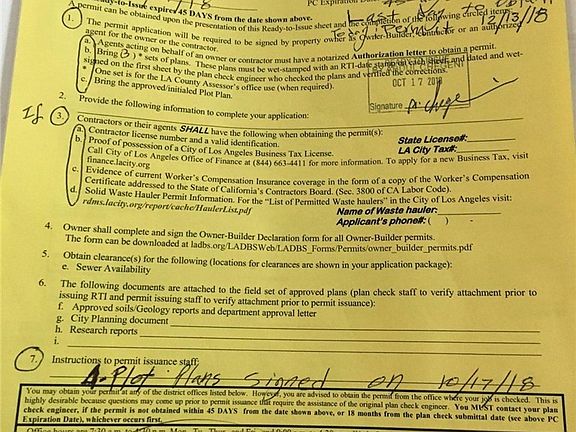 Ready-to-Issue expires 45 DAYS from the date shown above.
PC Expiration
A permit can be obtained upon the presentation of this Ready-to-Issue sheet and the completion of the following circled items:
Last Day to obtain
Temp Permit 12/13/18
1. The permit application will be required to be signed by property owner as Owner-Builder, Contractor or an authorized
agent for the owner or the contractor.
a. Agents acting on behalf of an owner or contractor must have a notarized Authorization letter to obtain a permit.
b. Bring (3) * sets of plans. These plans must be wet-stamped with an RTI-date stamp on each sheet and dated and wet-
signed on the first sheet by the plan check engineer who checked the plans and verified the corrections.
* One set is for LA County Assessor's office use (when required).
c. Bring the approved/initialed Plot Plan.
OCT 17 2018
Signature
2. Provide the following information to complete your application:
If 3. Contractors or their agents SHALL have the following when obtaining the permit(s):
a. Contractor license number and a valid identification.
State License#:
b. Proof of possession of a City of Los Angeles Business Tax License.
LA City Tax#:
Call City of Los Angeles Office of Finance at (844) 663-4411 for more information. To apply for a new Business Tax, visit
finance.lacity.org
c. Evidence of current Worker's Compensation Insurance coverage in the form of a copy of the Workers's Compensation
Certificate addressed to the State of California's Contractors Board. (Sec. 3800 of CA Labor Code).
d. Solid Waste Hauler Permit Information. For the "List of Permitted Waste haulers" in the City of Los Angeles visit:
rdms.lacity.org/report/cache/HaulerList.pdf
Name of Waste hauler:
Applicant's phone#: ( ) -
4. Owner shall complete and sign the Owner-Builder Declaration form for all Owner-Builder permits.
The form can be downloaded at ladbs.org/LADBSWeb/LADBS_Forms/Permits/owner_builder_permits.pdf
5. Obtain clearance(s) for the following (locations for clearances are shown in your application package):
e. Sewer Availability
6. The following documents are attached to the field set of approved plans (plan check staff to verify attachment prior to
issuing RTI and permit issuing staff to verify attachment prior to permit issuance):
f. Approved soils/Geology reports and department approval letter
g. City Planning document
h. Research reports
i.
7. Instructions to permit issuance staff:
Plot Plans Signed on 10/17/18
You may obtain your permit at any of the district offices listed below. However, you are advised to obtain the permit from the office where your job is checked. This is
highly desirable because questions may come up prior to permit issuance that require the assistance of the original plan check engineer. You MUST contact your plan
check engineer, if the permit is not obtained within 45 DAYS from the date shown above, or 18 months from the plan check submittal date (see above PC
Expiration Date), whichever occurs first.